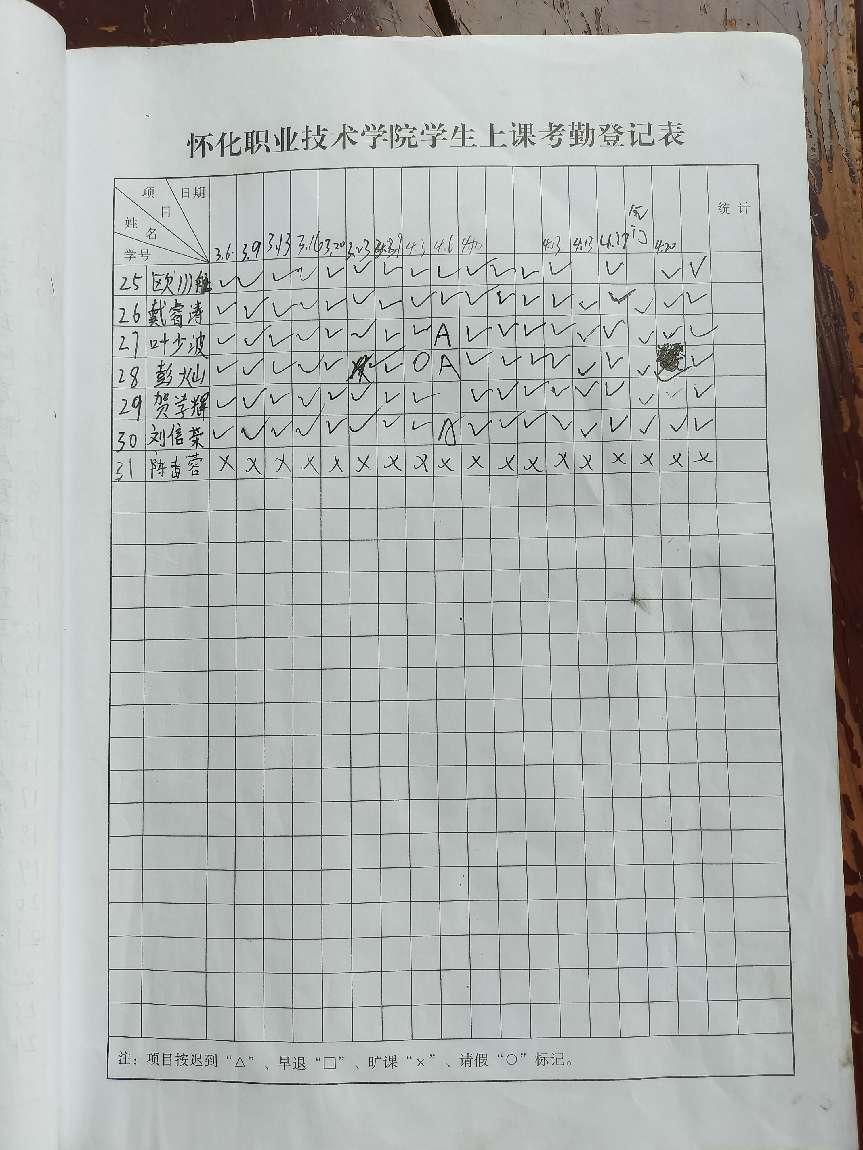 怀化职业技术学院学生上课考勤登记表
项目 日期
姓名
学号
3.6 3.9 3.13 3.16 3.20 3.23 4.6 4.13 4.20
统计
25 欧川 ✓ ✓ ✓ ✓ ✓ ✓ ✓ ✓ ✓ ✓ ✓ ✓ ✓ ✓ ✓ ✓
26 戴睿涛 ✓ ✓ ✓ ✓ ✓ ✓ ✓ ✓ ✓ ✓ ✓ ✓ ✓ ✓ ✓ ✓ ✓ ✓
27 叶少波 ✓ ✓ ✓ ✓ ✓ ✓ ✓ ✓ A ✓ ✓ ✓ ✓ ✓ ✓ ✓ ✓ ✓
28 彭灿 ✓ ✓ ✓ ✓ ✓ ✓ O A ✓ ✓ ✓ ✓ ✓ ✓ ✓ ✓
29 贺学辉 ✓ ✓ ✓ ✓ ✓ ✓ ✓ ✓ ✓ ✓ ✓ ✓ ✓ ✓ ✓ ✓ ✓
30 刘信荣 ✓ ✓ ✓ ✓ ✓ ✓ ✓ ✓ A ✓ ✓ ✓ ✓ ✓ ✓ ✓ ✓ ✓
31 陈香蓉 × × × × × × × × × × × × × × × × × ×
注：项目按迟到“△”、早退“□”、旷课“×”、请假“○”标记。